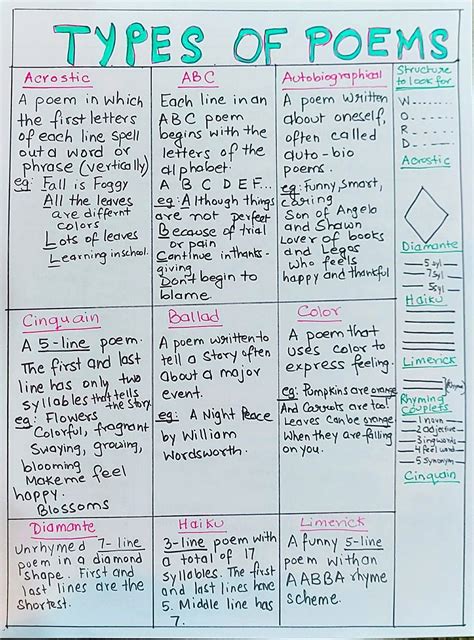 TYPES OF POEMS
Acrostic
A poem in which
the first letters
of each line spell
out a word or
phrase (vertically)
eg: Fall is Foggy
All the leaves
are differnt
colors
Lots of leaves
Learning inschool.
ABC
Each line in an
ABC poem
begins with the
letters of the
alphabet.
A B C D E F...
eg: Although things
are not perfect
Because of trial
or pain
Continue inthanks-
giving
Dont begin to
blame
Autobiographical
A poem written
about oneself,
often called
auto-bio
poems.
eg: Funny, smart,
caring
Son of Angelo
and Shawn
Lover of books
and Legos
Who feels
happy and thankful
Cinquain
A 5-line poem.
The first and last
line has only two
syllables that tells
the story.
eg: Flowers
Colorful, fragrant
Swaying, growing,
blooming
Make me feel
happy.
Blossoms
Ballad
A poem written to
tell a story often
about a major
event.
eg: A Night Peace
by William
Wordsworth.
Color
A poem that
uses color to
express feeling.
eg: Pumpkins are orange
And Carrots are too!
Leaves can be orange
When they are falling
on you.
Diamante
Unrhymed 7-line
poem in a diamond
shape. First and
last lines are the
Shortest.
Haiku
3-line poem with
a total of 17
syllables. The first
and last lines have
5. Middle line has
7.
Limerick
A funny 5-line
poem with an
AABBA rhyme
scheme.
Structure
to look for
W
O
R
D
Acrostic
Diamante
5 syl
7 syl
5 syl
Haiku
Limerick
Rhyming
Couplets
1 noun
2 adjective
3 ing words
4 feel word
5 Synonym
Cinquain